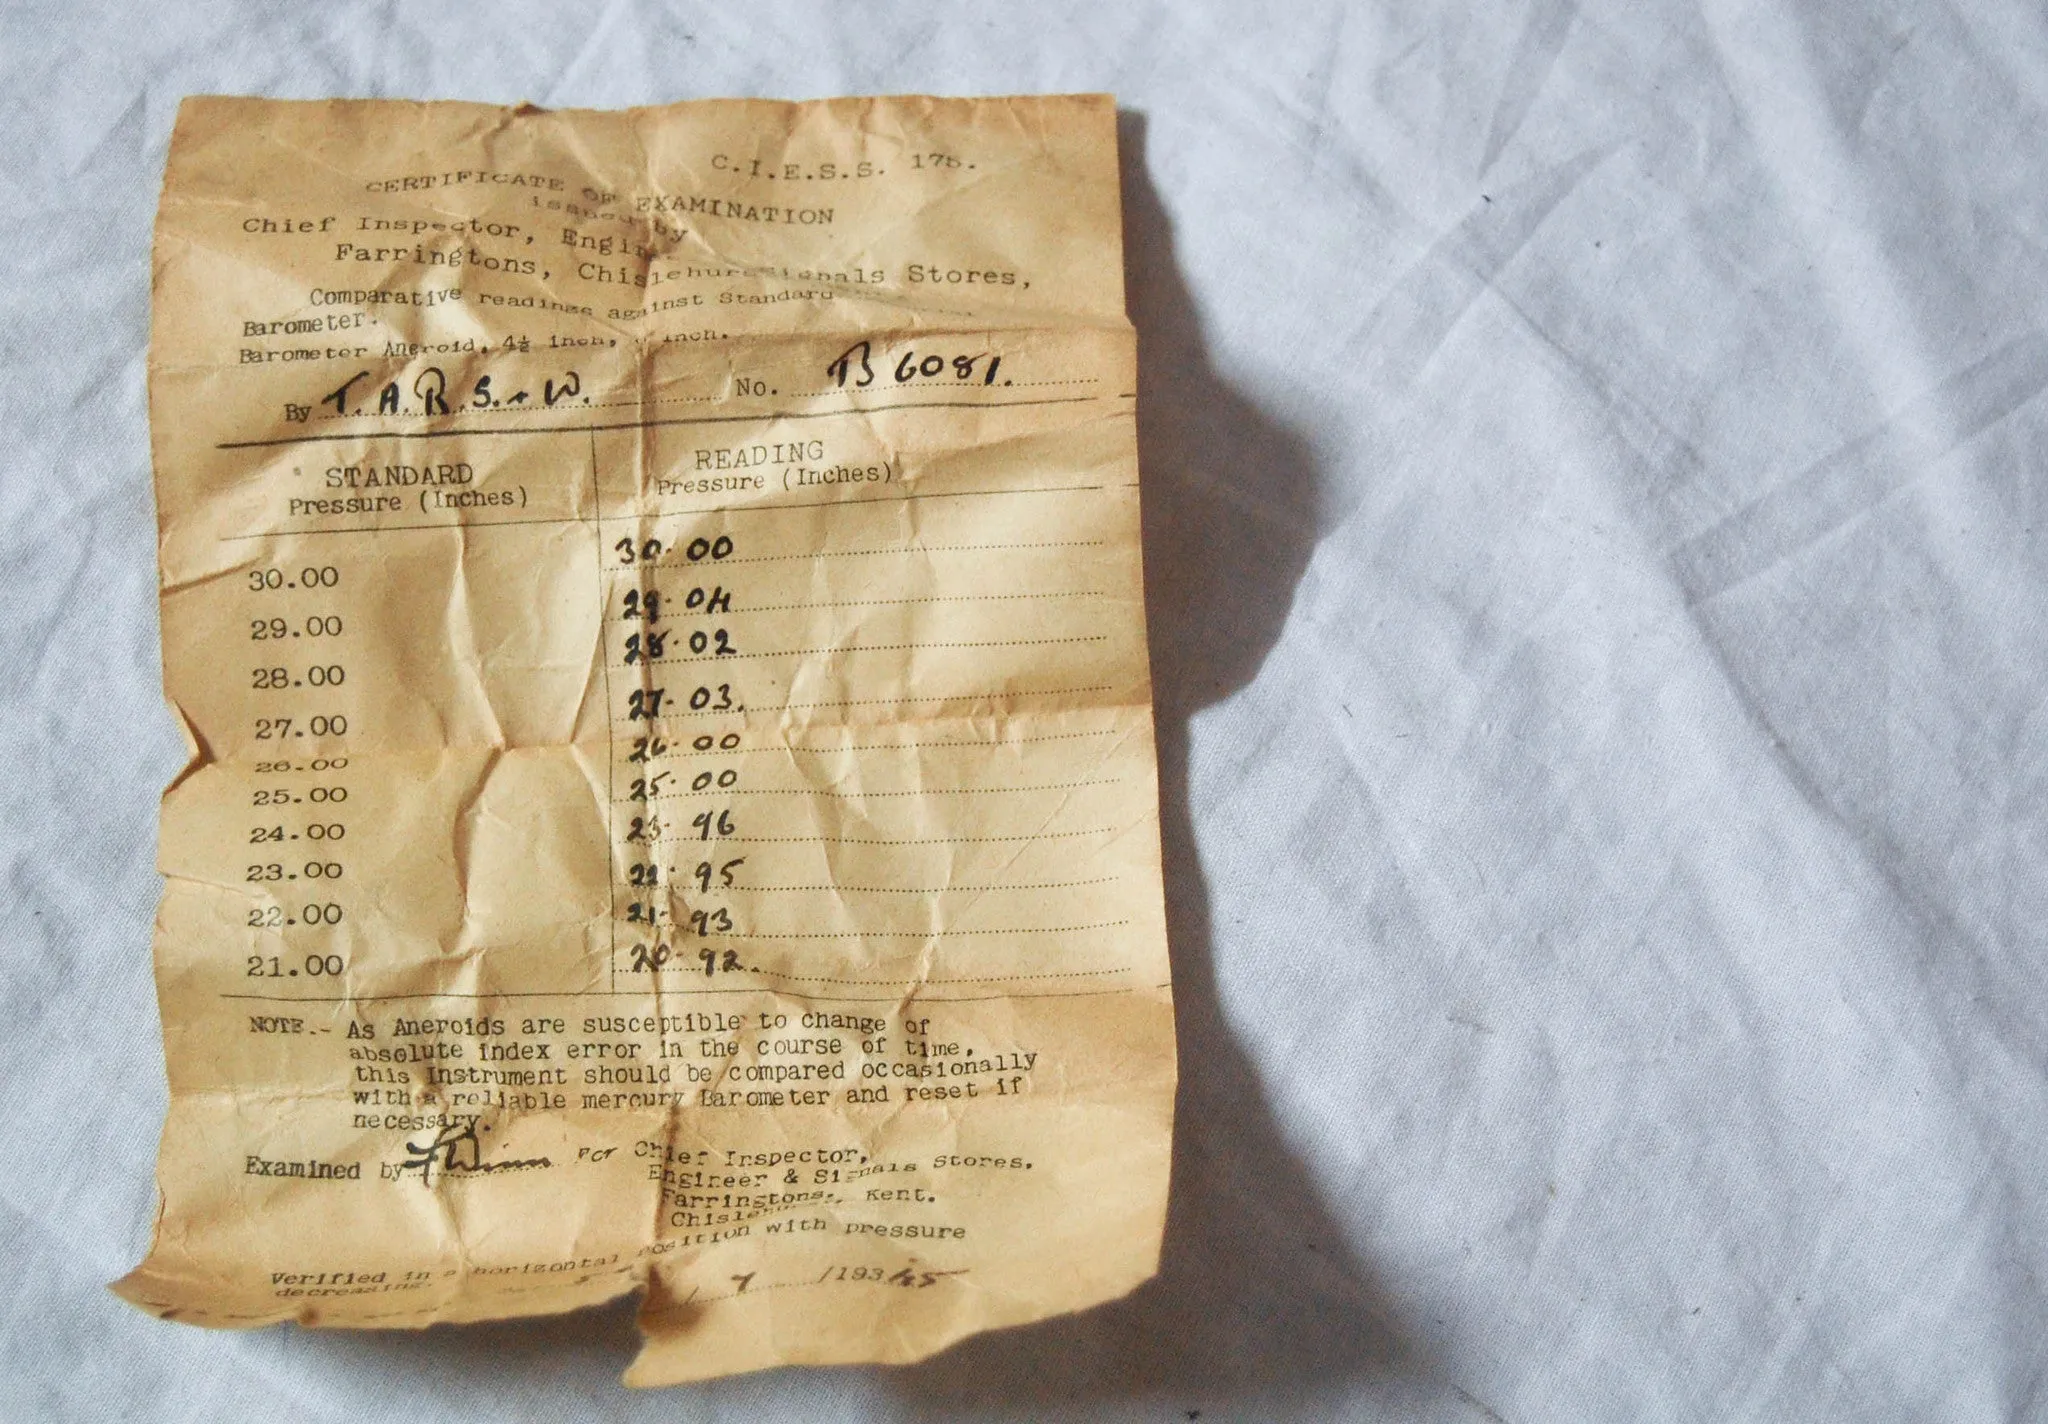 C.I.E.S.S. 175.
CERTIFICATE OF EXAMINATION
issued by
Chief Inspector, Signals Stores,
Farringtons,
Comparative readings against Standard
Barometer.
Barometer Aneroid, 4½ inch, inch.
By T. A. R. S. + W. No. B 6081.
STANDARD READING
Pressure (Inches) Pressure (Inches)
30.00 30.00
29.00 29.04
28.00 28.02
27.00 27.03.
26.00 26.00
25.00 25.00
24.00 23.96
23.00 22.95
22.00 21.93
21.00 20.92.
NOTE.- As Aneroids are susceptible to change of
absolute index error in the course of time,
this Instrument should be compared occasionally
with a reliable mercury Barometer and reset if
necessary.
Examined by for Chief Inspector,
Engineer & Signals Stores,
Farringtons, Kent.
Verified in a horizontal position with pressure
decreasing.
/ 7 /193